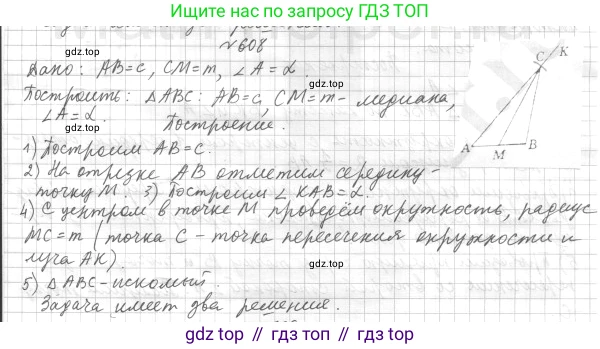 Ищите нас по запросу ГДЗ ТОП
gdz.top
№608
Дано: AB=c, CM=m, ∠A=α.
Построить: △ABC: AB=c, CM=m - медиана,
∠A=α. Построение.
1) Построим AB=c.
2) На отрезке AB отметим середину -
точку M. 3) Построим ∠KAB=α.
4) С центром в точке M проведём окружность, радиус
MC=m (точка C - точка пересечения окружности и
луча AK).
5) △ABC - искомый.
Задача имеет два решения.
C K
A M B
gdz.top
gdz.top
gdz.top
gdz.top
gdz.top
gdz.top // гдз топ // gdz.top // гдз топ